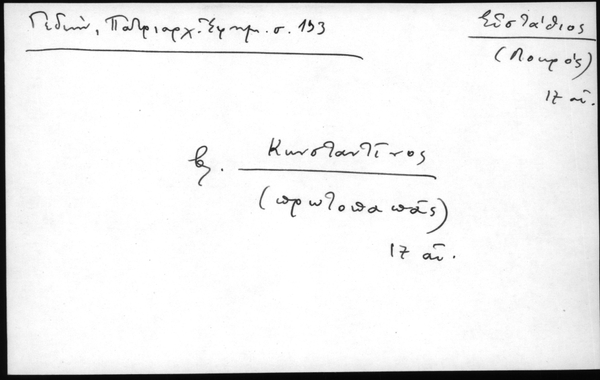 Γεδεών, Πατριαρχ. Ἐφημ. σ. 193
Εὐστάθιος
(Μοιρός)
17 αἰ.
βλ. Κωνσταντῖνος
(πρωτοπαπᾶς)
17 αἰ.